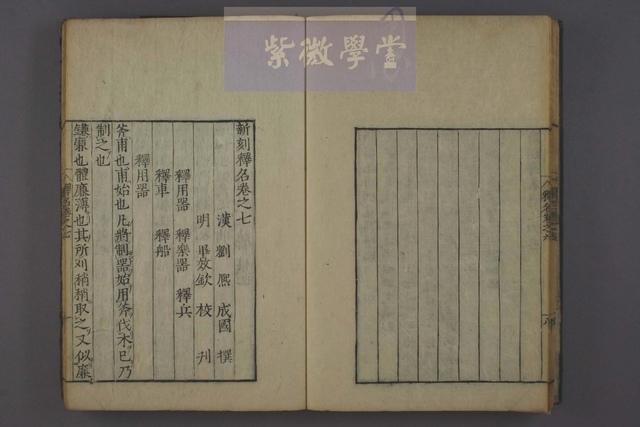 紫微學堂
釋名卷之六
新刻釋名卷之七
漢 劉熈 成國 撰
明 畢效欽 校刋
釋用器 釋樂器 釋兵
釋車 釋船
釋用器
斧甫也甫始也凡將制器始用斧伐木已乃
制之也
鐮廉也體廉薄也其所刈稍稍取之又似廉
釋名卷之七